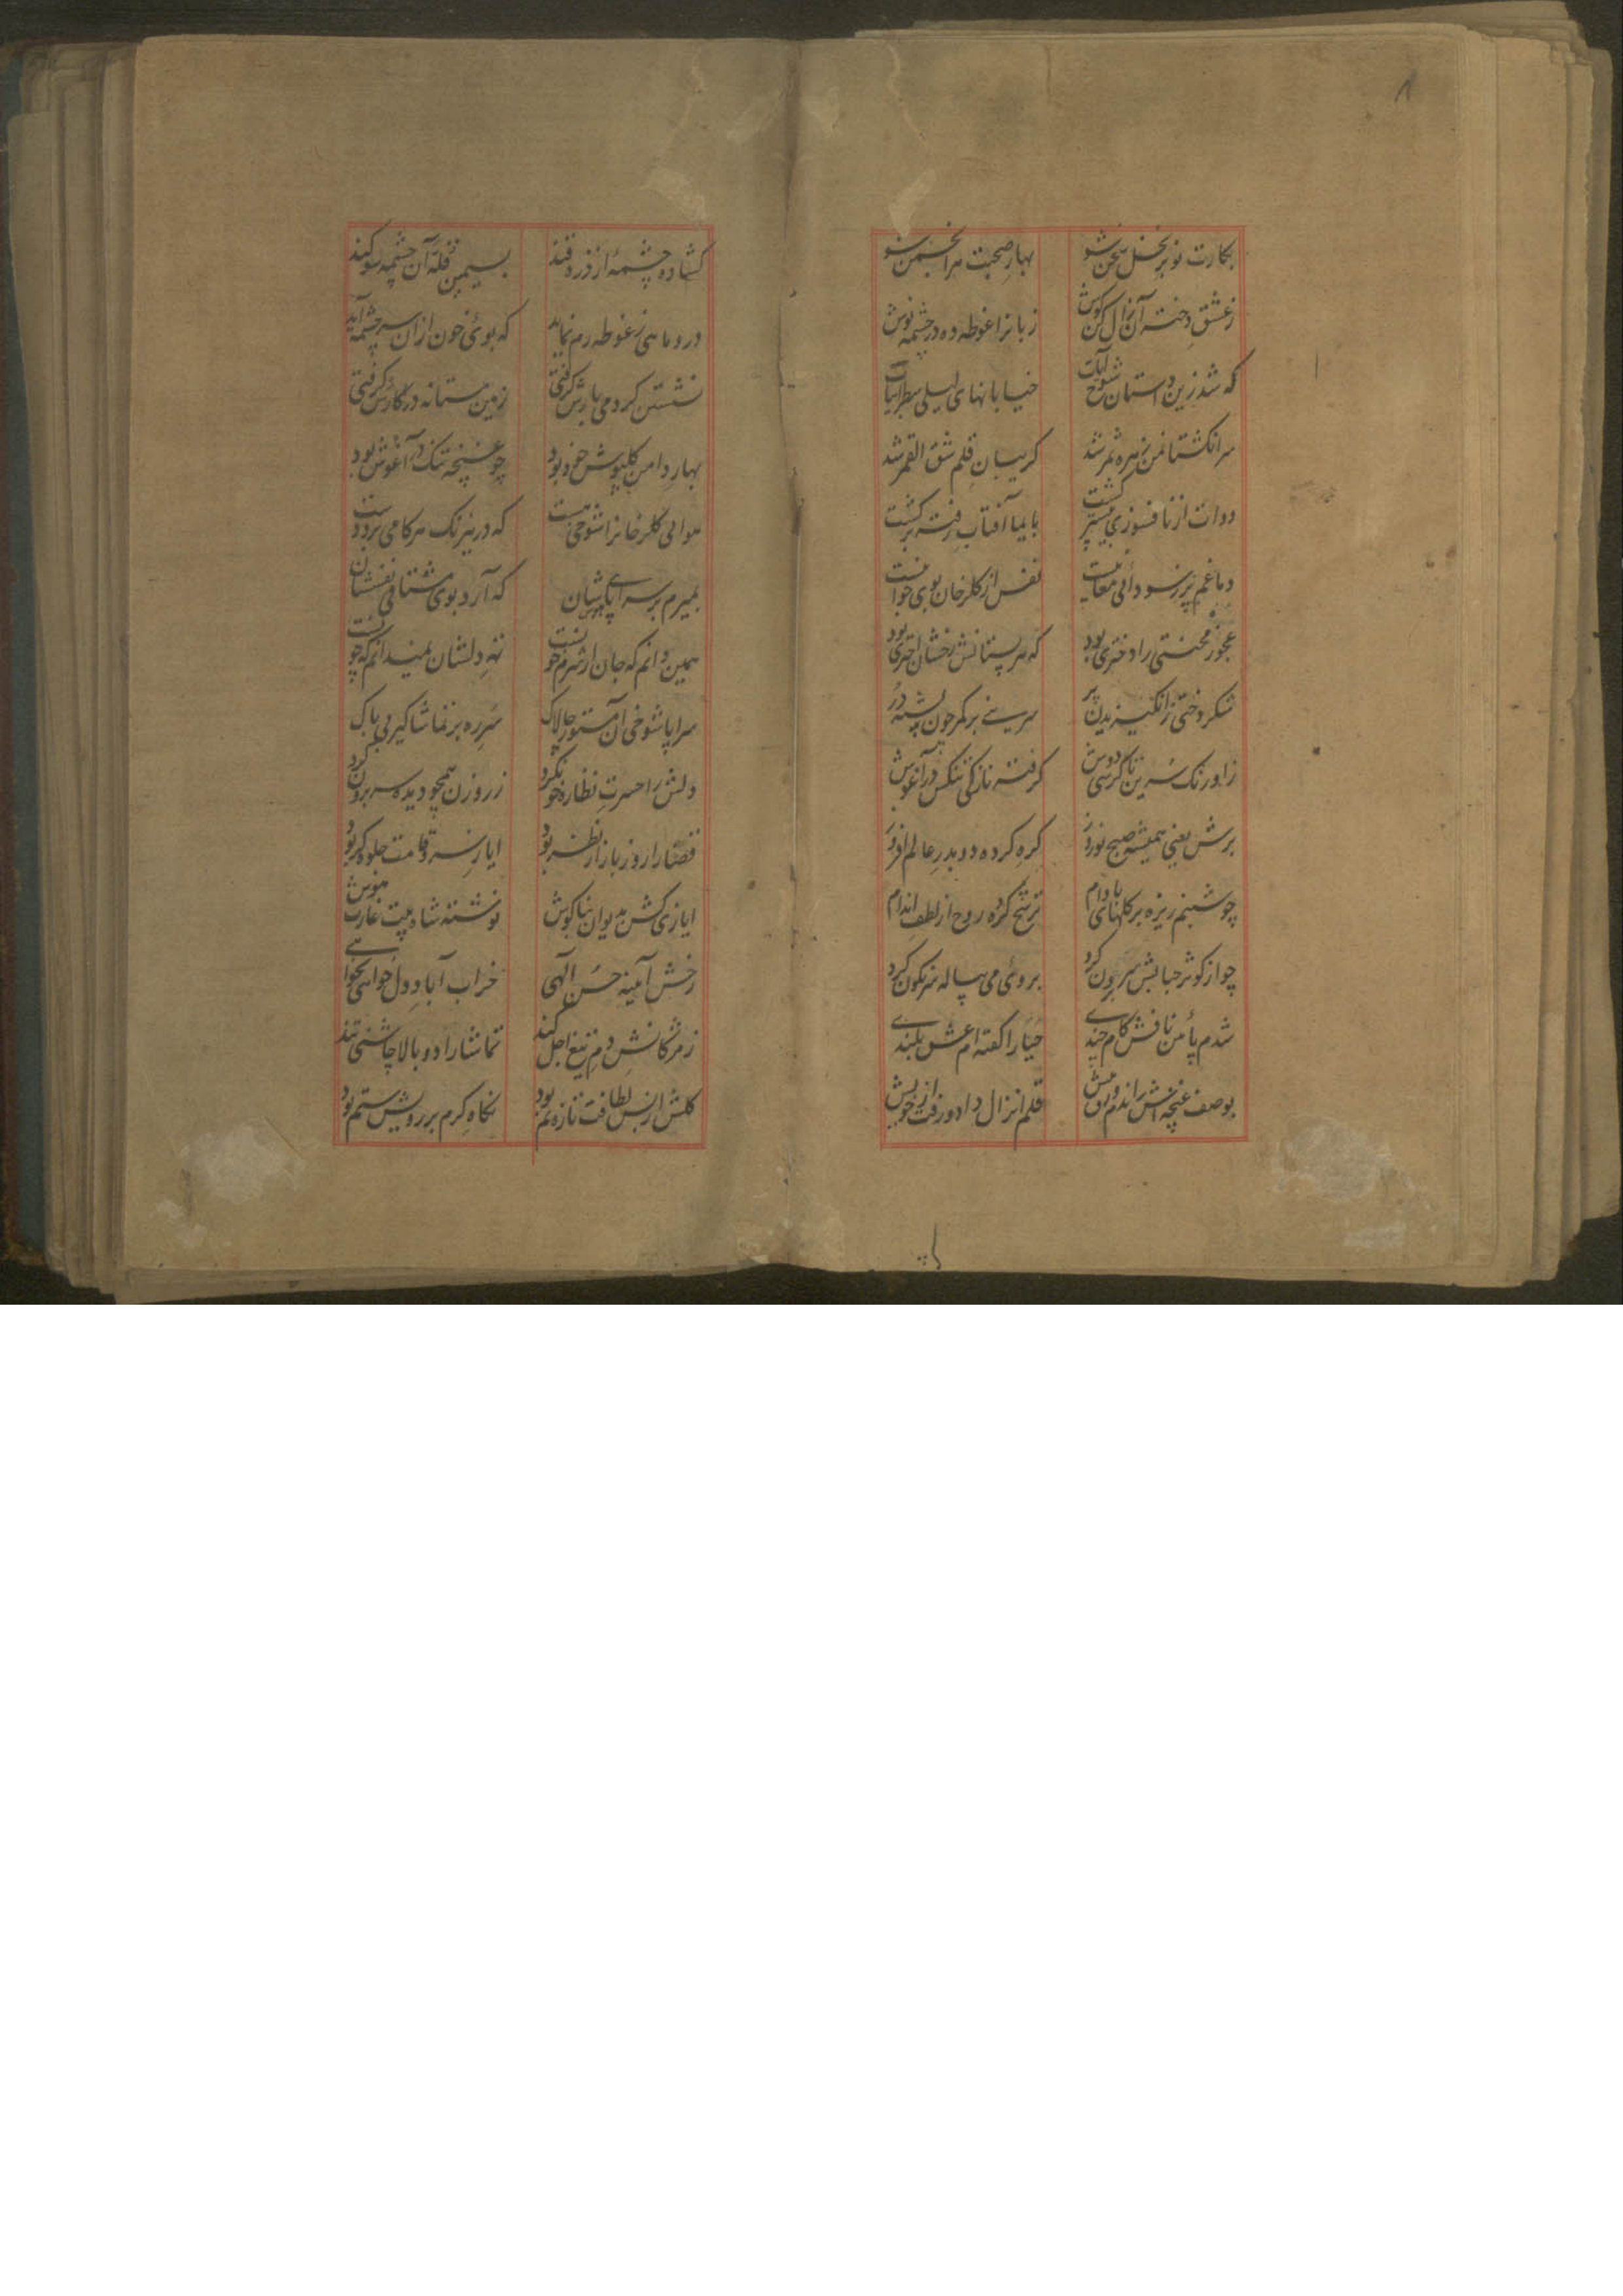 بکارت نوبر نخل سخن شو بهار صحبت هر انجمن شو
ز عشق دختر آن زال کن گوش زبانرا غوطه ده در چشمه نوش
که شد زین داستان شوخ خیابانهای لیلی سطر ابیات
سر انگشتان من زهره ثمر شد گریبان قلم شق القمر شد
دوات از نافسوزی گشت بایما آفتاب رفته برگشت
دماغم پر ز سودائی نفس از گلرخان بوی
عجوز محنتی را دختری بود که هر پستانش رخشان اختری بود
شکر دختی ز انگیزیدن پر سرینی بر کمر چون پشته در
ز اورنک سرین تا کرسی دوش گرفته نازکی تنگش در آغوش
برش یعنی همیشه صبح نوروز گره کرده دو بدر عالم افروز
چو شبنم ریزه بر گلهای بادام ترشح کرده روح از لطف اندام
چو از کوثر حبابش سر برون کرد بروی می پیاله سرنگون کرد
شدم نافش کام چندی حیا را گفته ام عشق بلندی
بوصف غنچه اش راندم قلم انزال داد و رفت از خویش
گشاده چشمه از ذره قند بسیمین قله آن چشمه سوگند
درو ماهی ز غوطه رم نماید که بوی خون ازان سرچشمه آید
نشستن کرد می بارش گرفتی زمین مستانه در کنارش گرفتی
بهار دامن گلپوش خود بود چو غنچه تنک در آغوش بود
هوای گلرخانرا شوخی هست که در نیرنک هر کامی برد دست
بمیرم بر سراپا شان که آرد بوی مشتاقی نفسشان
همین دانم که جان از شرم خونست ته دلشان نمیدانم که چونست
سراپا شوخی آن مستور چالاک سر ره بر تماشا گیر بی باک
دلش را حسرت نظاره خون کرد ز روزن همچو دیده سر برون کرد
قضا را روز بازار نظر بود ایاز سرو قامت جلوه گر بود
ایازی کش بدیوان بناگوش نوشته شاه بیت غارت هوش
رخش آیینه حسن الهی خراب آباد دل خواهی نخواهی
ز مژگانش دم تیغ اجل کند تماشا را دو بالا چاشنی تند
گلش از بس لطافت تازه نم بود نگاه گرم بر رویش ستم بود